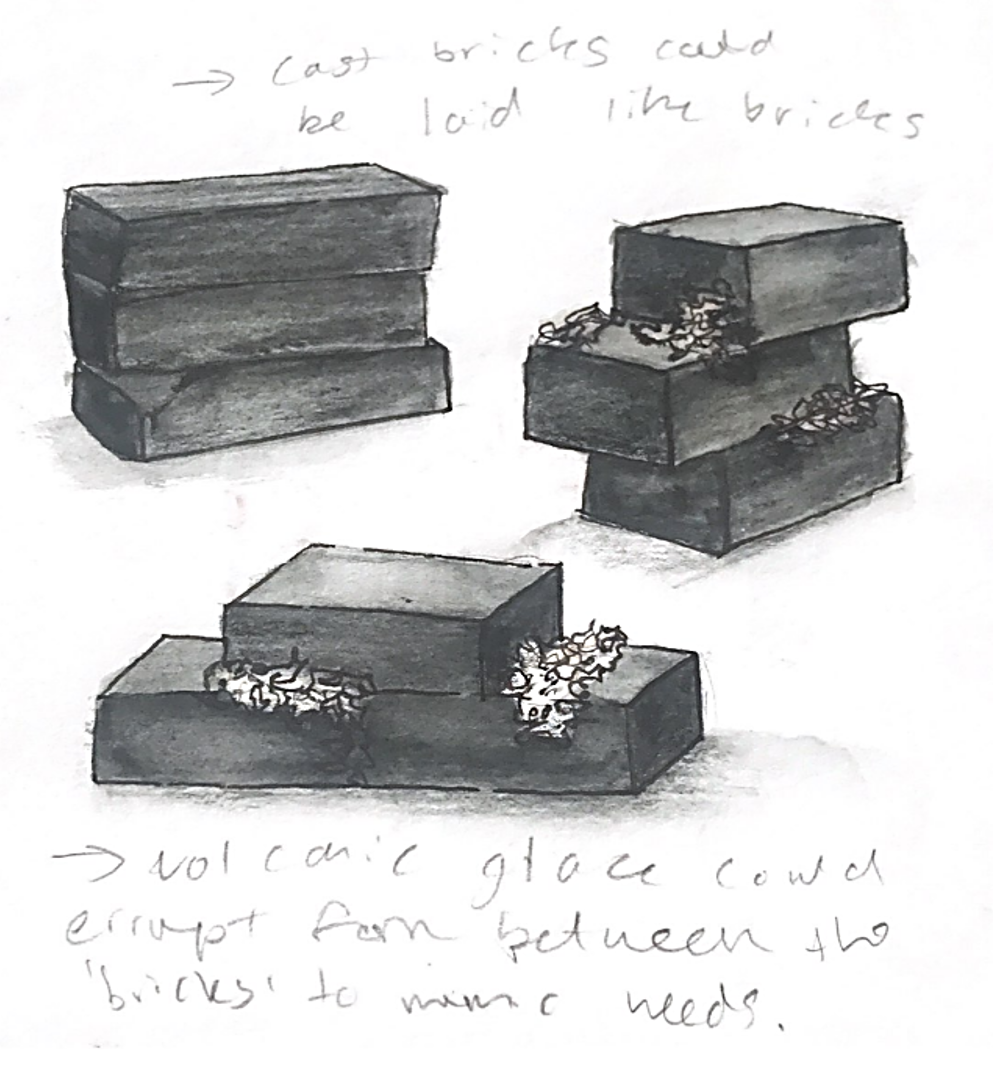 → Cast bricks could
be laid like bricks
→ volcanic glaze could
errupt form between the
'bricks' to mimic weeds.